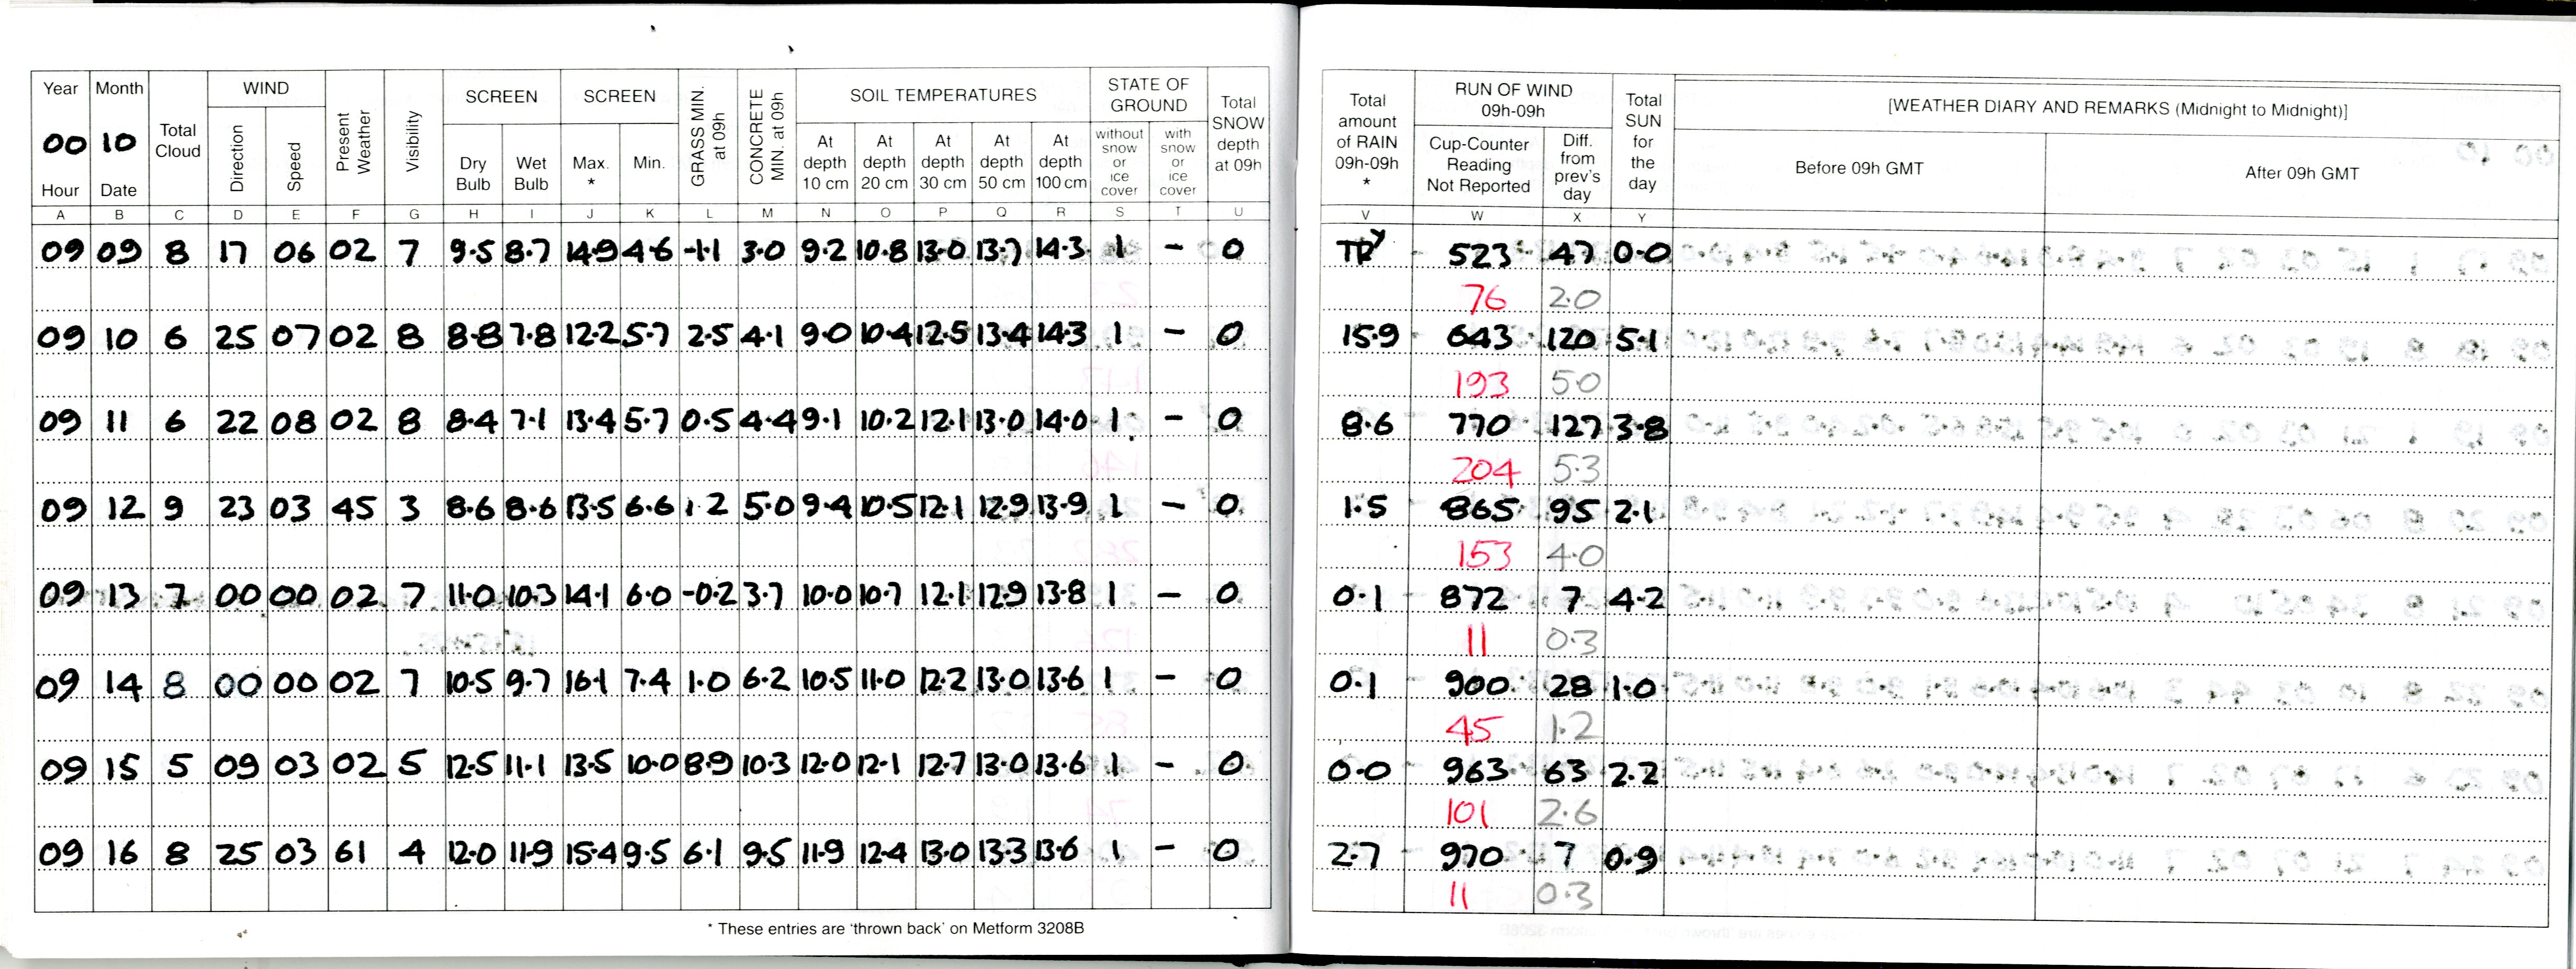 Year Month Total Cloud WIND Present Weather Visibility SCREEN SCREEN GRASS MIN. at 09h CONCRETE MIN. at 09h SOIL TEMPERATURES STATE OF GROUND Total SNOW depth at 09h Total amount of RAIN 09h-09h * RUN OF WIND 09h-09h Total SUN for the day [WEATHER DIARY AND REMARKS (Midnight to Midnight)]
00 10 Direction Speed Dry Bulb Wet Bulb Max. * Min. At depth 10 cm At depth 20 cm At depth 30 cm At depth 50 cm At depth 100 cm without snow or ice cover with snow or ice cover Cup-Counter Reading Not Reported Diff. from prev's day Before 09h GMT After 09h GMT
Hour Date
A B C D E F G H I J K L M N O P Q R S T U V W X Y
09 09 8 17 06 02 7 9.5 8.7 14.9 4.6 -1.1 3.0 9.2 10.8 13.0 13.7 14.3 1 – 0 TR 523 47 0.0
76 2.0
09 10 6 25 07 02 8 8.8 7.8 12.2 5.7 2.5 4.1 9.0 10.4 12.5 13.4 14.3 1 – 0 15.9 643 120 5.1
193 5.0
09 11 6 22 08 02 8 8.4 7.1 13.4 5.7 0.5 4.4 9.1 10.2 12.1 13.0 14.0 1 – 0 8.6 770 127 3.8
204 5.3
09 12 9 23 03 45 3 8.6 8.6 13.5 6.6 1.2 5.0 9.4 10.5 12.1 12.9 13.9 1 – 0 1.5 865 95 2.1
153 4.0
09 13 7 00 00 02 7 11.0 10.3 14.1 6.0 -0.2 3.7 10.0 10.7 12.1 12.9 13.8 1 – 0 0.1 872 7 4.2
11 0.3
09 14 8 00 00 02 7 10.5 9.7 16.1 7.4 1.0 6.2 10.5 11.0 12.2 13.0 13.6 1 – 0 0.1 900 28 1.0
45 1.2
09 15 5 09 03 02 5 12.5 11.1 13.5 10.0 8.9 10.3 12.0 12.1 12.7 13.0 13.6 1 – 0 0.0 963 63 2.2
101 2.6
09 16 8 25 03 61 4 12.0 11.9 15.4 9.5 6.1 9.5 11.9 12.4 13.0 13.3 13.6 1 – 0 2.7 970 7 0.9
11 0.3
* These entries are 'thrown back' on Metform 3208B